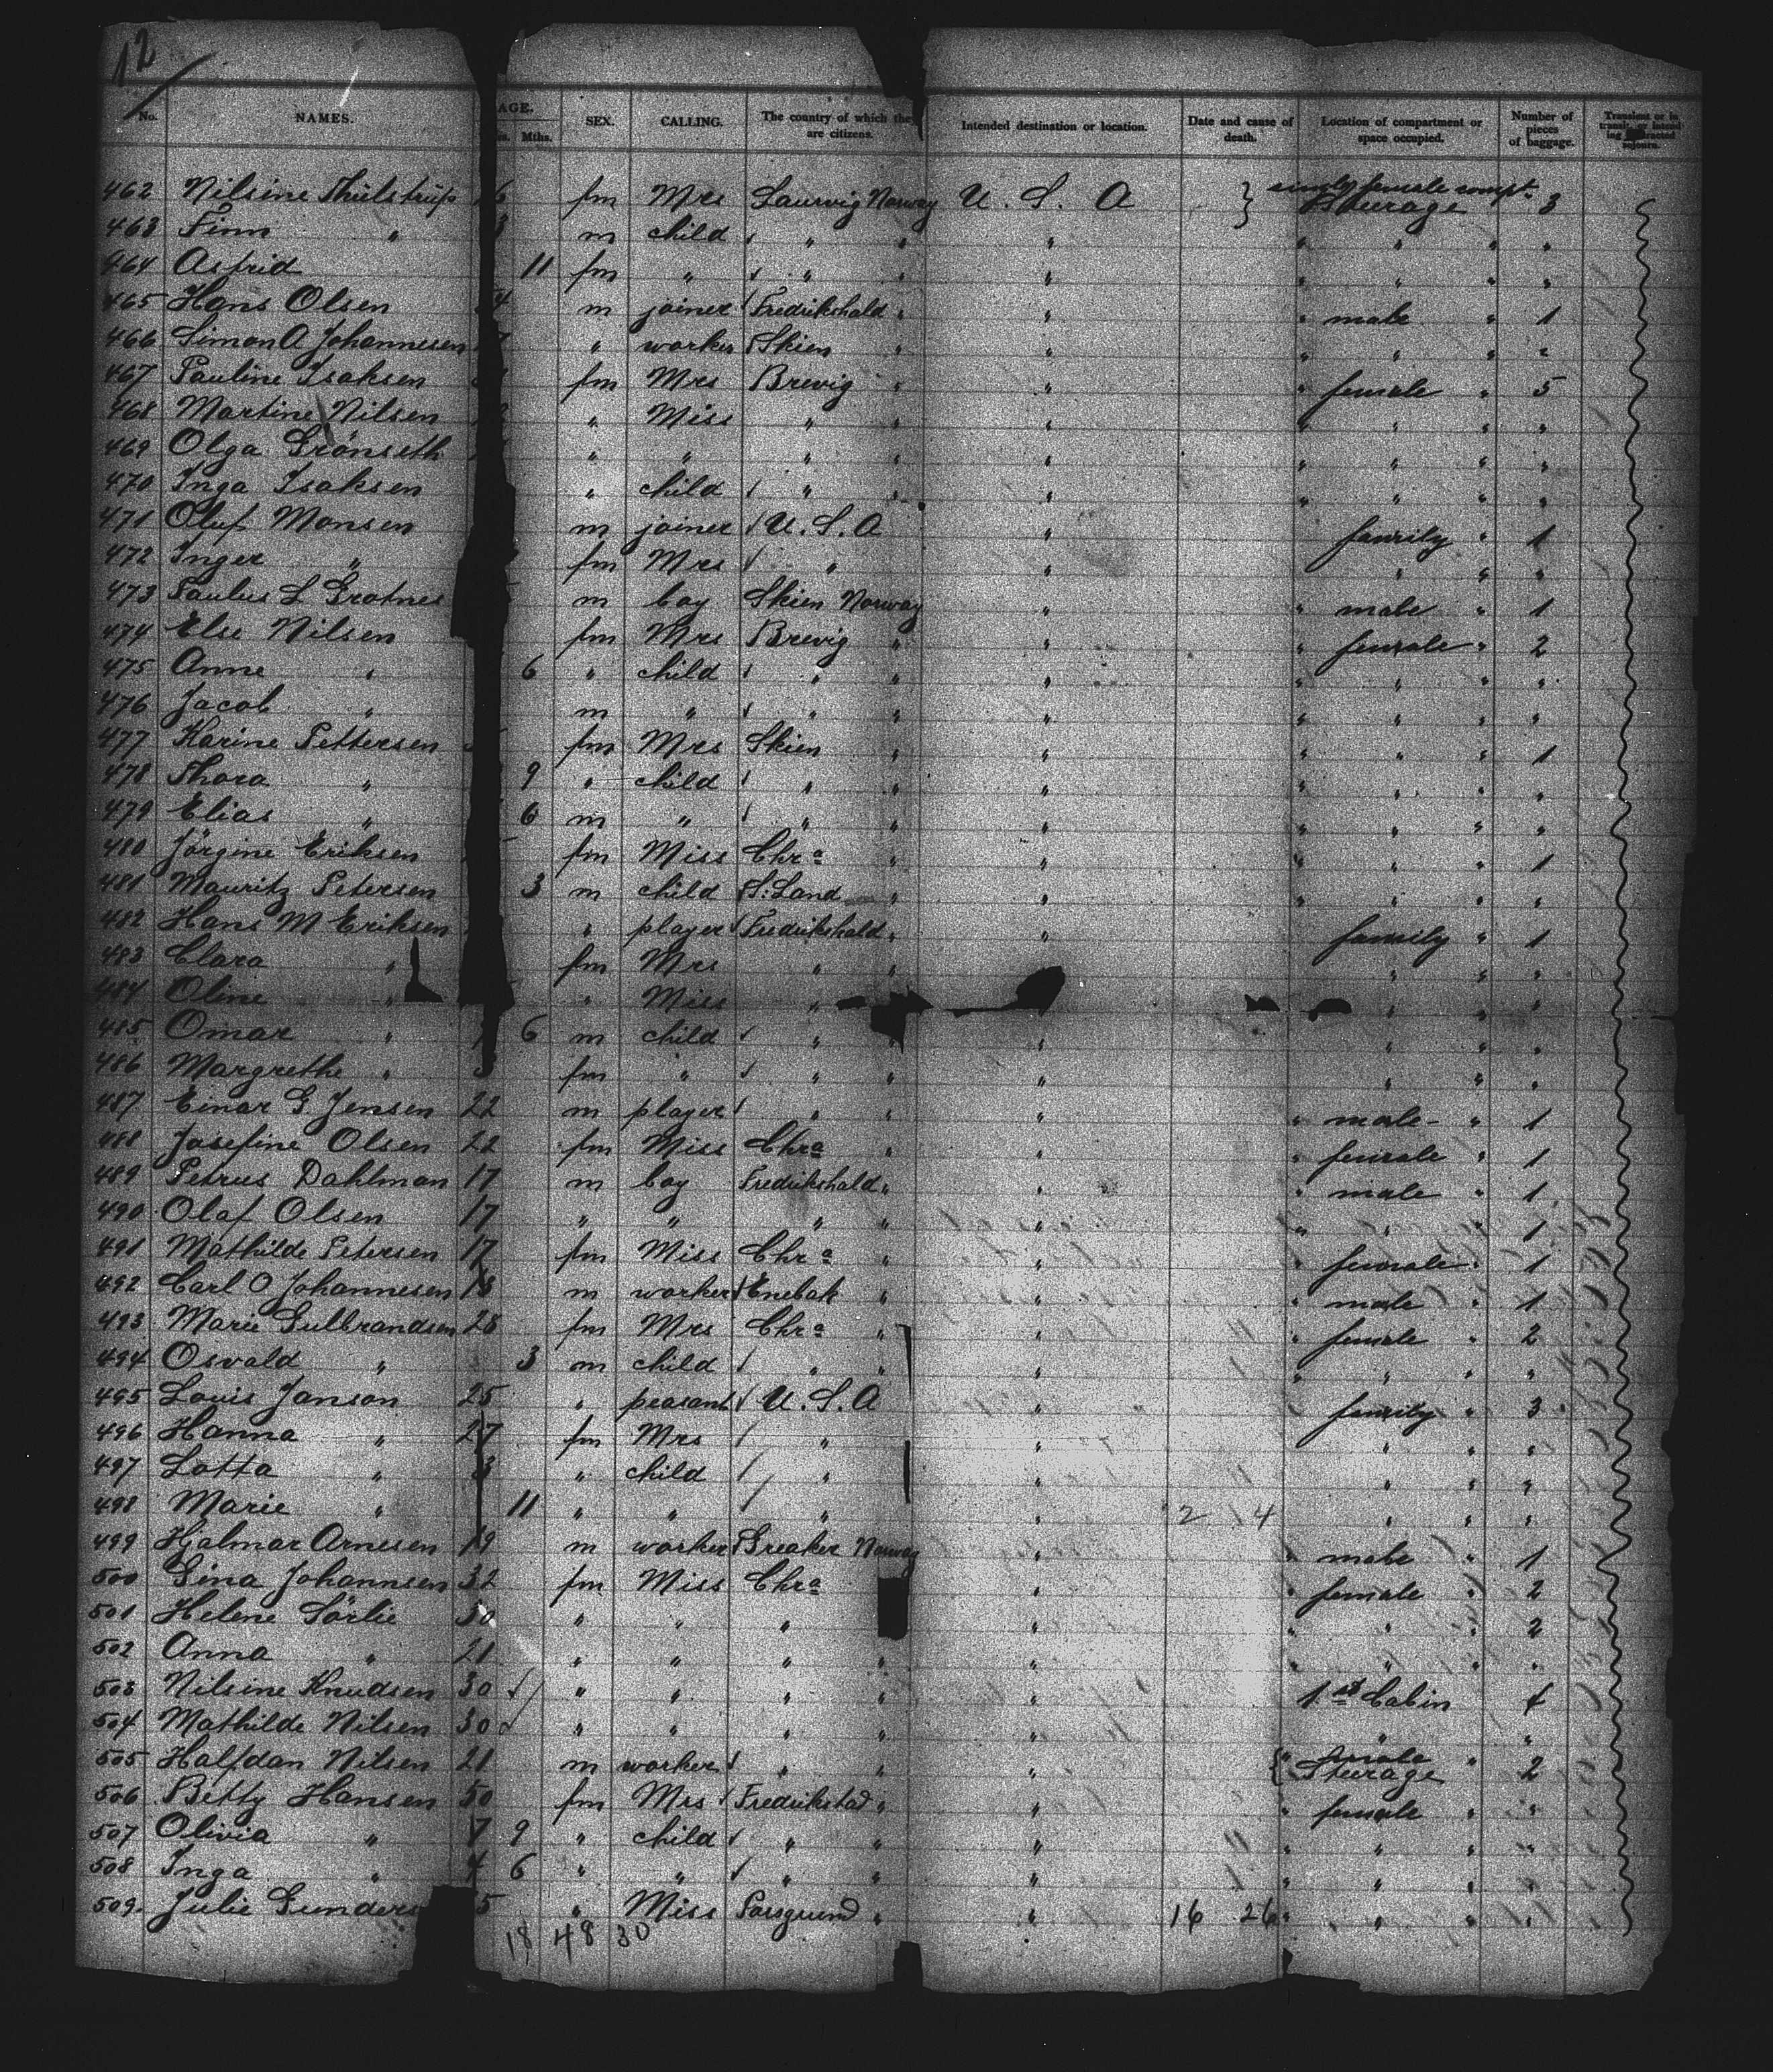 12
No. NAMES. AGE. Mths. SEX. CALLING. The country of which they are citizens. Intended destination or location. Date and cause of death. Location of compartment or space occupied. Number of pieces of baggage. Transient or in transit or intending protracted sojourn.
462 Nilsine Thülstrüp 6 fm Mrs Laurvig Norway U. S. A } female compt Steurage 3
463 Finn " 3 m child √ " " " " " " "
464 Astrid 11 fm " √ " " " " " " "
465 Hans Olsen 4 m joiner √ Fredrikshald " " " male " 1
466 Simon A Johannesen 7 " worker √ Skien " " " " " "
467 Pauline Isaksen fm Mrs Brevig " " " female " 5
468 Martine Nilsen " Miss " " " " " " "
469 Olga Grönseth " " " " " " " " "
470 Inga Isaksen " child √ " " " " " " "
471 Oluf Monsen m joiner √ U. S. A " family " 1
472 Inger " fm Mrs √ " " " " "
473 Paulus L Grotnes m boy Skien Norway " " male " 1
474 Else Nilsen fm Mrs Brevig " " " female " 2
475 Anne " 6 " child √ " " " " " " "
476 Jacob " m " √ " " " " " " "
477 Karine Pettersen fm Mrs Skien " " " " " 1
478 Thora " 9 " child √ " " " " " " "
479 Elias " 6 m " √ " " " " " " "
480 Jörgine Eriksen fm Miss Chra " " " " " 1
481 Mauritz Petersen 3 m child √ S. Land " " " " " "
482 Hans M Eriksen " player √ Fredrikshald " " family " 1
483 Clara " fm Mrs " " " " " "
484 Oline " " Miss " " " " "
485 Omar " 6 m child √ " " " " " "
486 Margrethe " fm " √ " " " " " "
487 Einar G Jensen 22 m player √ " " " " male " 1
488 Josefine Olsen 22 fm Miss Chra " " " female " 1
489 Petrus Dahlman 17 m boy Fredrikshald " " " male " 1
490 Olaf Olsen 17 " " " " " " " 1
491 Mathilde Petersen 17 fm Miss Chra " " " female " 1
492 Carl O Johannesen 18 m worker √ Enebak " " " male " 1
493 Marie Gulbrandsen 28 fm Mrs Chra " " " female " 2
494 Osvald " 3 m child √ " " " " " " "
495 Louis Janson 25 " peasant √ U. S. A " family " 3
496 Hanna " 27 fm Mrs √ " " " " "
497 Lotta " 3 " child √ " " " " "
498 Marie " 11 " " √ " " 2 14 " " "
499 Hjalmar Arnesen 19 m worker √ Greaker Norway " " male " 1
500 Gina Johannsen 32 fm Miss Chra " " female " 2
501 Helene Sörlie 30 " " " " " " " 2
502 Anna " 21 " " " " " " " " "
503 Nilsine Knudsen 30 √ " " " " " 1st Cabin 4
504 Mathilde Nilsen 30 √ " " " " " " "
505 Halfdan Nilsen 21 m worker √ " " " { " male Steurage " 2
506 Betty Hansen 50 fm Mrs √ Fredrikstad " " " female " "
507 Olivia " 7 9 " child √ " " " " " " "
508 Inga " 4 6 " " √ " " " " " " "
509 Julie Gunders 5 " Miss Porsgrund " " 16 26 " " " "
18 48 30